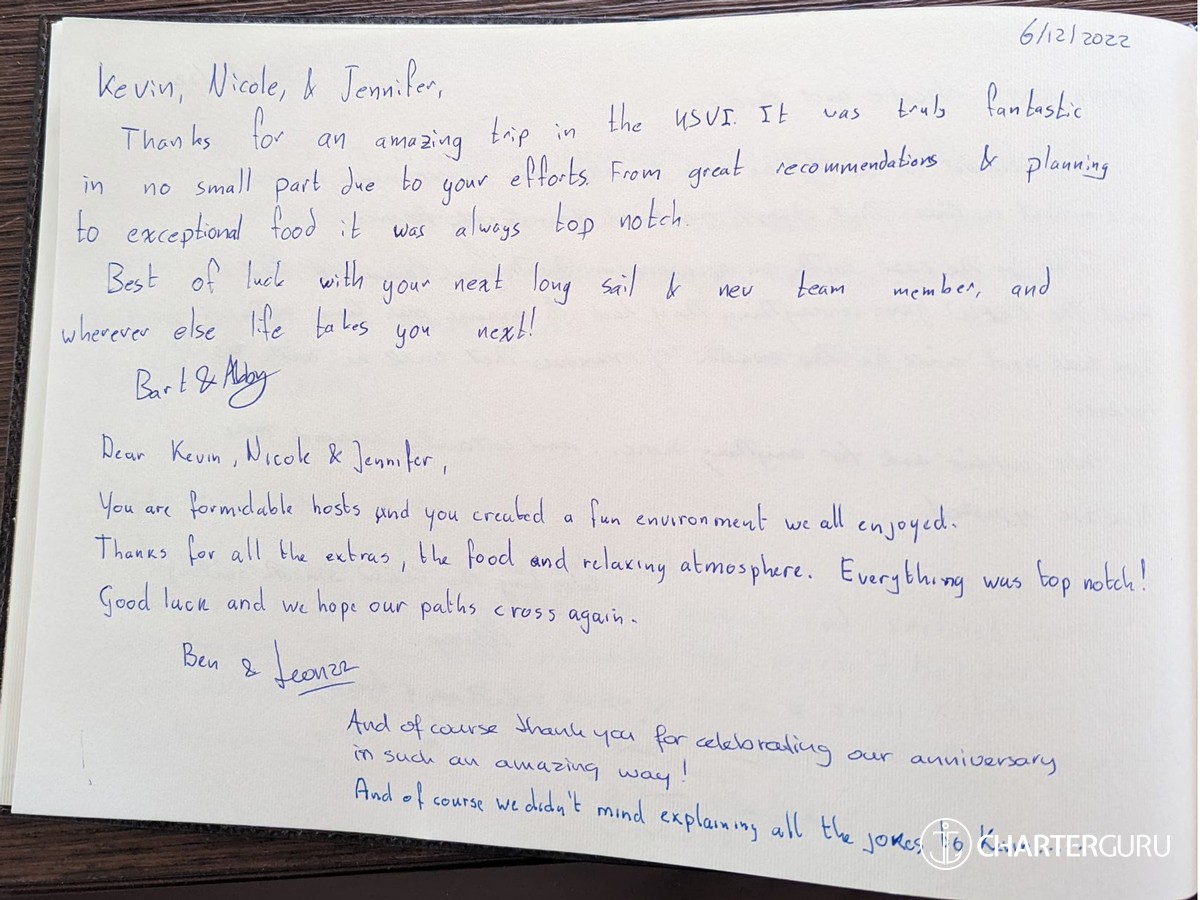 6/12/2022
Kevin, Nicole, & Jennifer,
Thanks for an amazing trip in the USVI. It was truly fantastic
in no small part due to your efforts. From great recommendations & planning
to exceptional food it was always top notch.
Best of luck with your next long sail & new team member, and
wherever else life takes you next!
Bart & Abby
Dear Kevin, Nicole & Jennifer,
You are formidable hosts and you created a fun environment we all enjoyed.
Thanks for all the extras, the food and relaxing atmosphere. Everything was top notch!
Good luck and we hope our paths cross again.
Ben &
And of course thank you for celebrating our anniversary
in such an amazing way!
And of course we didn't mind explaining all the jokes to
CHARTERGURU